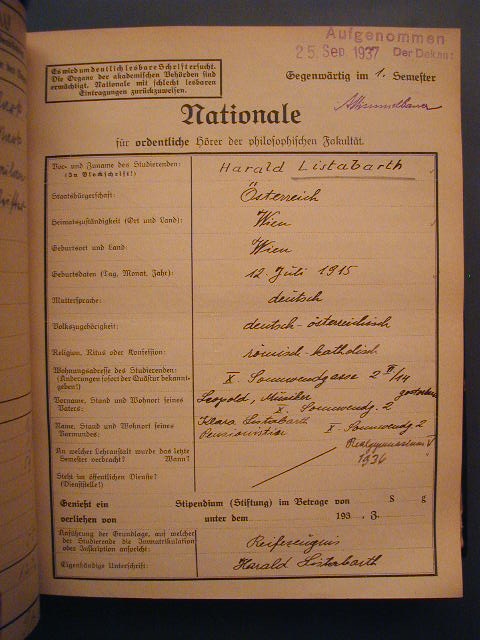 Aufgenommen
25. Sep. 1937 Der Dekan:
Es wird um deutlich lesbare Schrift ersucht.
Die Organe der akademischen Behörden sind
ermächtigt, Nationale mit schlecht lesbaren
Eintragungen zurückzuweisen.
Gegenwärtig im 1. Semester
Nationale
für ordentliche Hörer der philosophischen Fakultät.
Vor- und Zuname des Studierenden: Harald Listabarth
(In Blockschrift!)
Staatsbürgerschaft: Österreich
Heimatszuständigkeit (Ort und Land): Wien
Geburtsort und Land: Wien
Geburtsdaten (Tag, Monat, Jahr): 12. Juli 1915
Muttersprache: deutsch
Volkszugehörigkeit: deutsch-österreichisch
Religion, Ritus oder Konfession: römisch-katholisch
Wohnungsadresse des Studierenden: X. Sonnwendgasse 2 II/14
(Änderungen sofort der Quästur bekannt-
geben!)
Vorname, Stand und Wohnort seines Leopold, Musiker gestorben
Vaters: X. Sonnwendg. 2
Name, Stand und Wohnort seines Klara Listabarth X. Sonnwendg 2
Vormundes: Pensionistin
An welcher Lehranstalt wurde das letzte Realgymnasium V
Semester verbracht? Wann? 1936
Steht im öffentlichen Dienste?
(Dienststelle!)
Genießt ein Stipendium (Stiftung) im Betrage von S g
verliehen von unter dem 193 , Z.
Anführung der Grundlage, auf welcher
der Studierende die Immatrikulation Reifezeugnis
oder Inskription anspricht:
Eigenhändige Unterschrift: Harald Listabarth